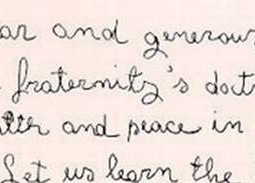 ar and generous
fraternity's doct
and peace in
Let us learn the